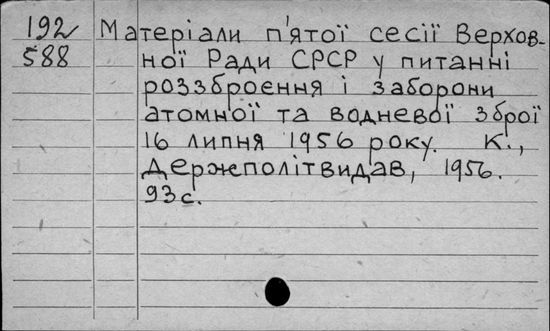 192 Матеріали п'ятої сесії Верхов-
588 ної Ради СРСР у питанні
роззброєння і заборони
атомної та водневої зброї
16 липня 1956 року. К.,
Держполітвидав, 1956.
93с.